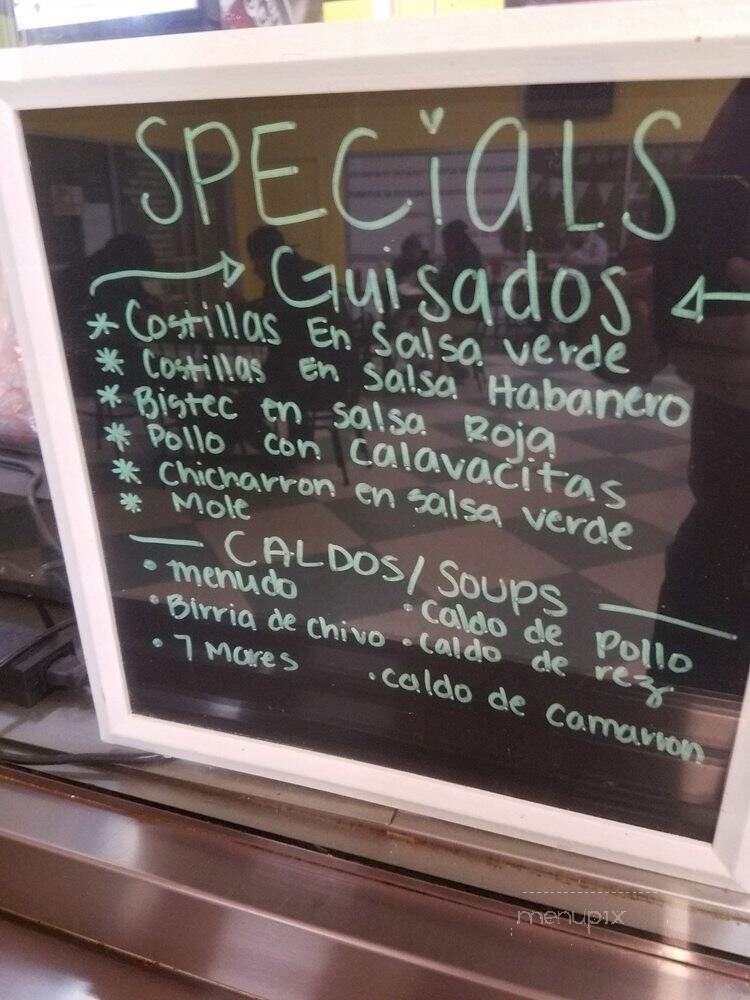 SPECiALS
Guisados
* Costillas En Salsa verde
* Costillas En Salsa Habanero
* Bistec en salsa Roja
* Pollo con Calavacitas
* Chicharron en salsa verde
* Mole
CALDOS/SOUPS
• menudo
• Caldo de pollo
• Birria de chivo
• caldo de rez
• 7 Mares
• caldo de camarron
menupix